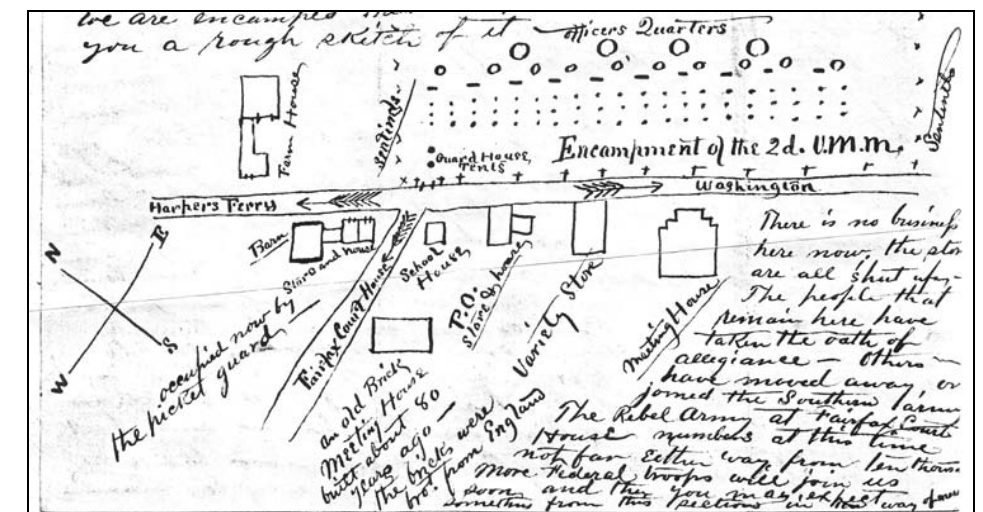 we are encamped
you a rough sketch of it
officers Quarters
Farm House
sentinels
Sentinels
Guard House
Tents
Encampment of the 2d. V.M.M.
Harpers Ferry
Washington
N
E
S
W
Barn
Store and house
occupied now by
the picket guard
Fairfax Court House
School
House
P.O.
Store & house
Variety Store
Meeting House
an old Brick
Meeting House
built about 80
years ago
the bricks were
bro't from England
There is no business
here now, the stor
are all shut up,-
The people that
remain here have
taken the oath of
allegiance - Others
have moved away or
joined the Southern army
The Rebel Army at Fairfax Court
House numbers at this time
not far Either way from ten thous
More Federal troops will join us
soon and then you may expect
something from this section in the way of